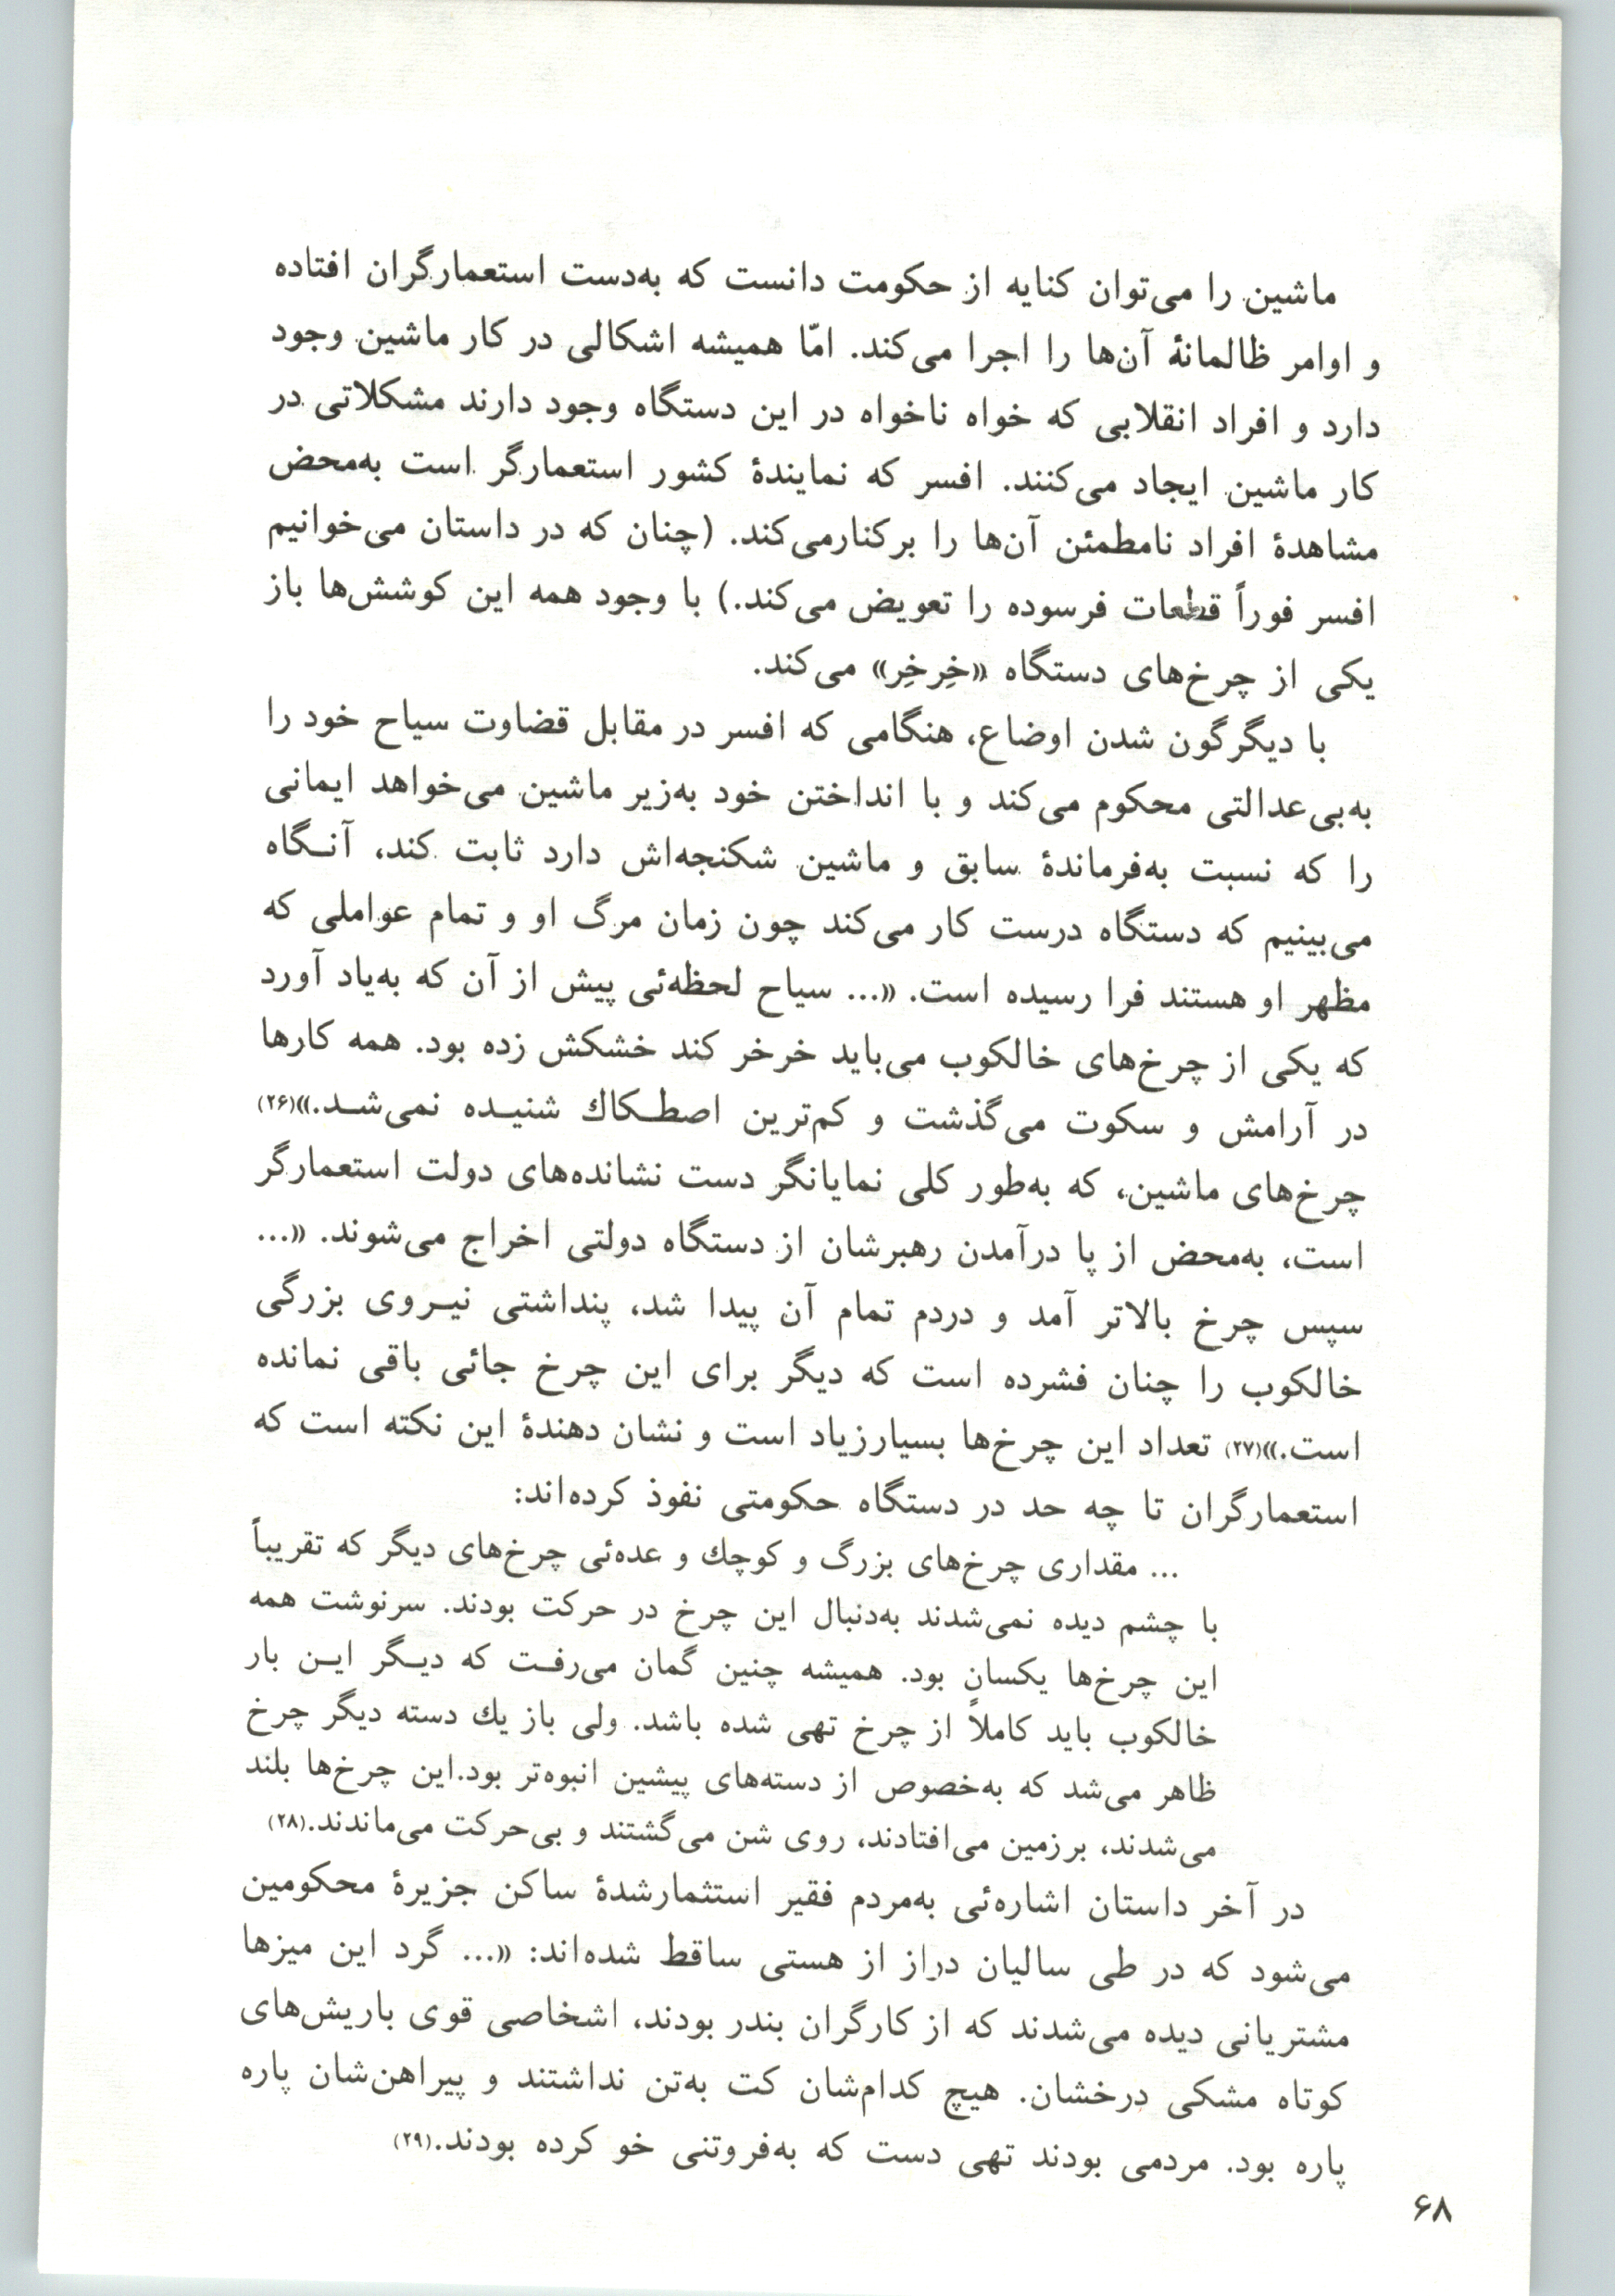 ماشین را می‌توان کنایه از حکومت دانست که به‌دست استعمارگران افتاده
و اوامر ظالمانهٔ آن‌ها را اجرا می‌کند. امّا همیشه اشکالی در کار ماشین وجود
دارد و افراد انقلابی که خواه ناخواه در این دستگاه وجود دارند مشکلاتی در
کار ماشین ایجاد می‌کنند. افسر که نمایندهٔ کشور استعمارگر است به‌محض
مشاهدهٔ افراد نامطمئن آن‌ها را برکنارمی‌کند. (چنان که در داستان می‌خوانیم
افسر فوراً قطعات فرسوده را تعویض می‌کند.) با وجود همه این کوشش‌ها باز
یکی از چرخ‌های دستگاه «خِرخِر» می‌کند.
با دیگرگون شدن اوضاع، هنگامی که افسر در مقابل قضاوت سیاح خود را
به‌بی‌عدالتی محکوم می‌کند و با انداختن خود به‌زیر ماشین می‌خواهد ایمانی
را که نسبت به‌فرماندهٔ سابق و ماشین شکنجه‌اش دارد ثابت کند، آنـگاه
می‌بینیم که دستگاه درست کار می‌کند چون زمان مرگ او و تمام عواملی که
مظهر او هستند فرا رسیده است. «... سیاح لحظه‌ئی پیش از آن که به‌یاد آورد
که یکی از چرخ‌های خالکوب می‌باید خرخر کند خشکش زده بود. همه کارها
در آرامش و سکوت می‌گذشت و کم‌ترین اصطـکاك شنیـده نمی‌شـد.»(۲۶)
چرخ‌های ماشین، که به‌طور کلی نمایانگر دست نشانده‌های دولت استعمارگر
است، به‌محض از پا درآمدن رهبرشان از دستگاه دولتی اخراج می‌شوند. «...
سپس چرخ بالاتر آمد و دردم تمام آن پیدا شد، پنداشتی نیـروی بزرگی
خالکوب را چنان فشرده است که دیگر برای این چرخ جائی باقی نمانده
است.»(۲۷) تعداد این چرخ‌ها بسیارزیاد است و نشان دهندهٔ این نکته است که
استعمارگران تا چه حد در دستگاه حکومتی نفوذ کرده‌اند:
... مقداری چرخ‌های بزرگ و کوچك و عده‌ئی چرخ‌های دیگر که تقریباً
با چشم دیده نمی‌شدند به‌دنبال این چرخ در حرکت بودند. سرنوشت همه
این چرخ‌ها یکسان بود. همیشه چنین گمان می‌رفـت که دیـگر ایـن بار
خالکوب باید کاملاً از چرخ تهی شده باشد. ولی باز یك دسته دیگر چرخ
ظاهر می‌شد که به‌خصوص از دسته‌های پیشین انبوه‌تر بود.این چرخ‌ها بلند
می‌شدند، برزمین می‌افتادند، روی شن می‌گشتند و بی‌حرکت می‌ماندند.(۲۸)
در آخر داستان اشاره‌ئی به‌مردم فقیر استثمارشدهٔ ساکن جزیرهٔ محکومین
می‌شود که در طی سالیان دراز از هستی ساقط شده‌اند: «... گرد این میزها
مشتریانی دیده می‌شدند که از کارگران بندر بودند، اشخاصی قوی باریش‌های
کوتاه مشکی درخشان. هیچ کدام‌شان کت به‌تن نداشتند و پیراهن‌شان پاره
پاره بود. مردمی بودند تهی دست که به‌فروتنی خو کرده بودند.(۲۹)
۶۸